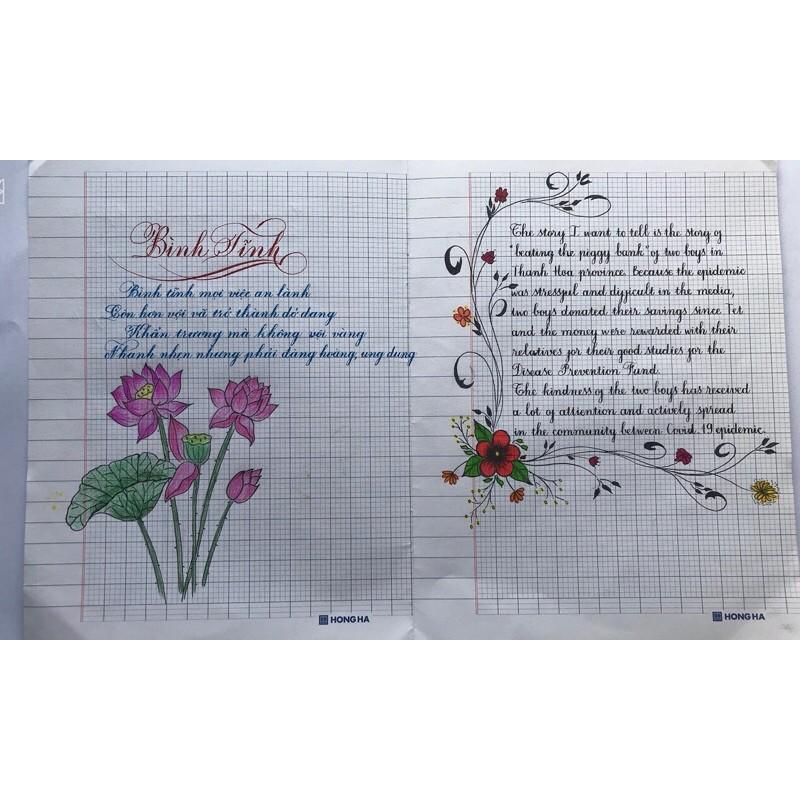 Bình Tĩnh
Bình tĩnh mọi việc an lành
Còn hơn vội vã trở thành dở dang
Khẩn trương mà không vội vàng
Nhanh nhẹn nhưng phải đàng hoàng, ung dung
HONG HA
The story I want to tell is the story of
"beating the piggy bank" of two boys in
Thanh Hoa province. Because the epidemic
was stressful and difficult in the media,
two boys donated their savings since Tet
and the money were rewarded with their
relatives for their good studies for the
Disease Prevention Fund.
The kindness of the two boys has received
a lot of attention and actively spread
in the community between Covid 19 epidemic.
HONG HA